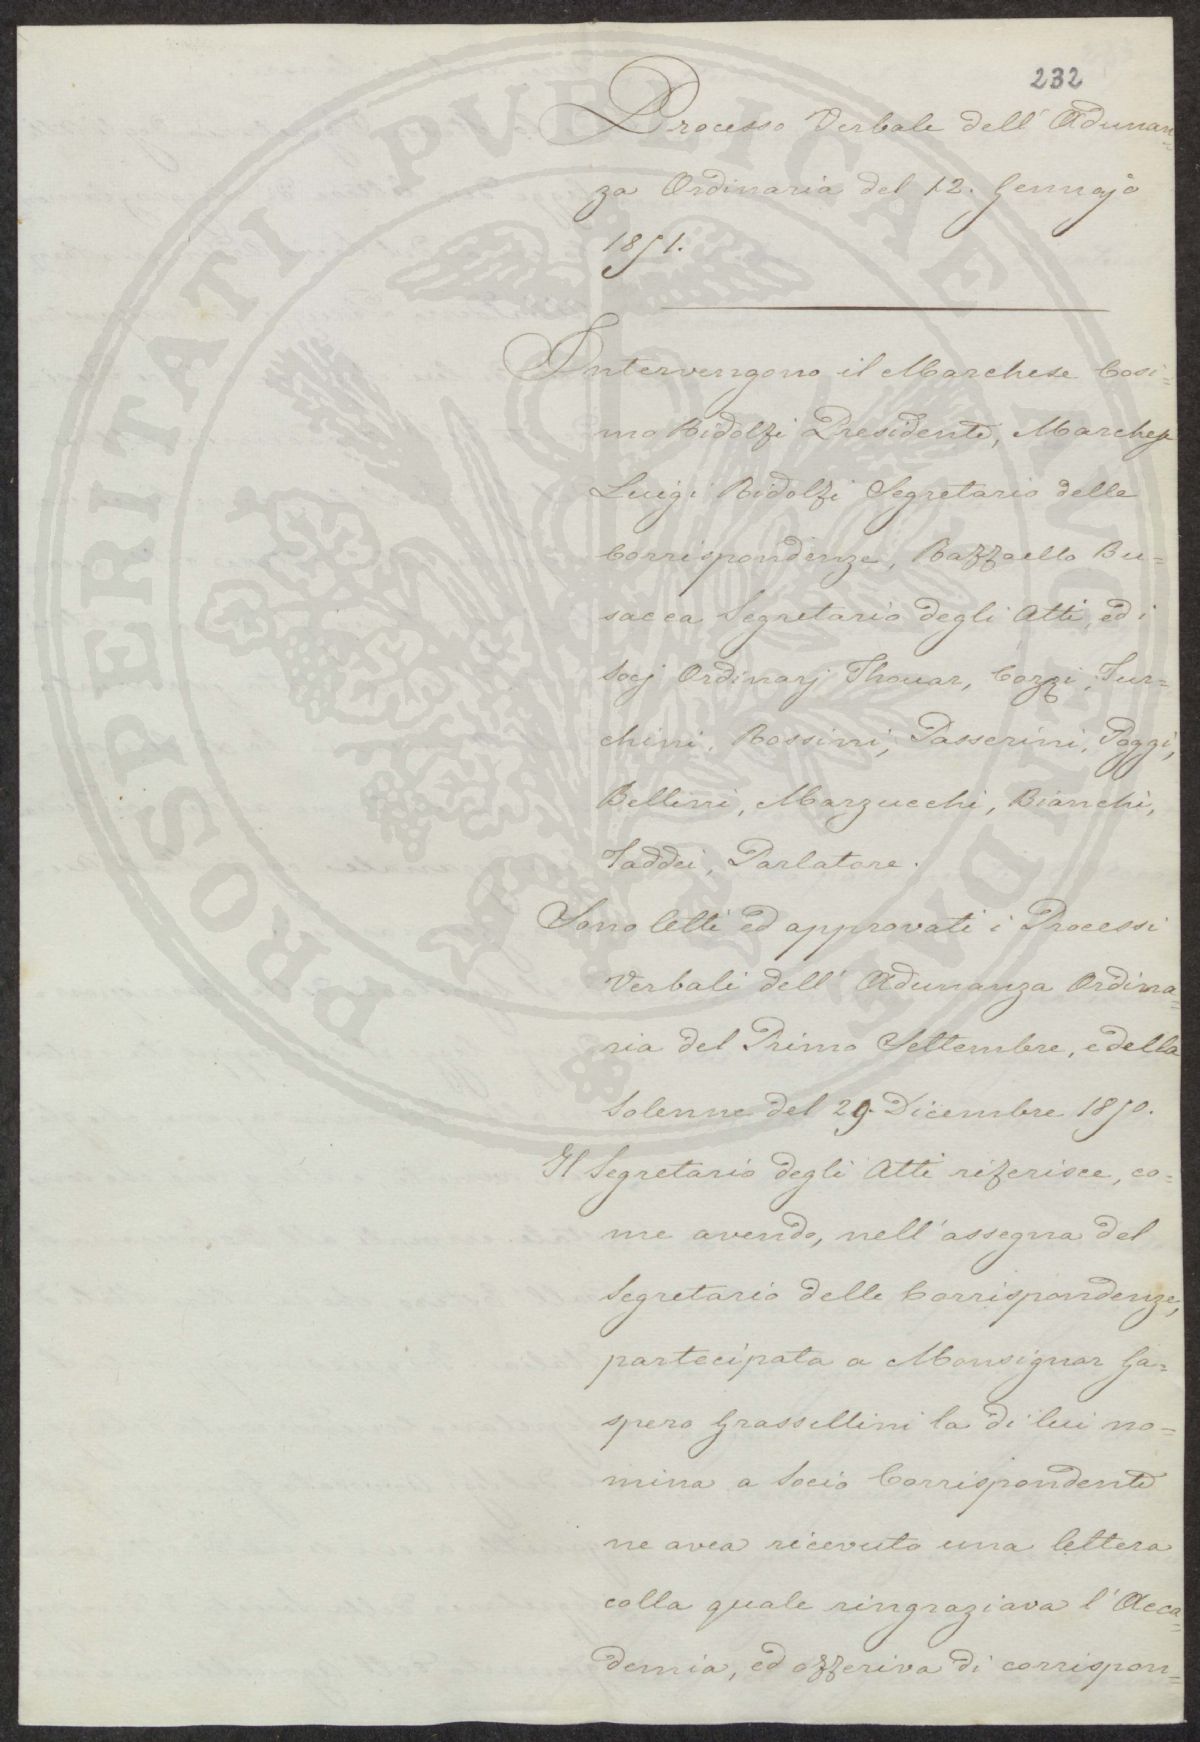 232
Processo Verbale dell' Adunan=
za Ordinaria del 12. Gennajo
1851.
Intervengono il Marchese Cosi=
mo Ridolfi Presidente, Marchese
Luigi Ridolfi Segretario delle
Corrispondenze, Raffaello Bu=
sacca Segretario degli Atti, ed i
Socj Ordinarj Thouar, Cozzi, Tur=
chini, Rossini, Passerini, Poggi,
Bellini, Marzucchi, Bianchi,
Taddei, Parlatore.
Sono letti ed approvati i Processi
Verbali dell' Adunanza Ordina=
ria del Primo Settembre, e della
Solenne del 29. Dicembre 1850.
Il Segretario degli Atti riferisce, co=
me avendo, nell' assegna del
Segretario delle Corrispondenze,
partecipata a Monsignor Ga=
spero Grassellini la di lui no=
mina a Socio Corrispondente
ne avea ricevuto una lettera
colla quale ringraziava l' Acca=
demia, ed offeriva di corrispon=
PROSPERITATI PVBLICAE AVGENDAE